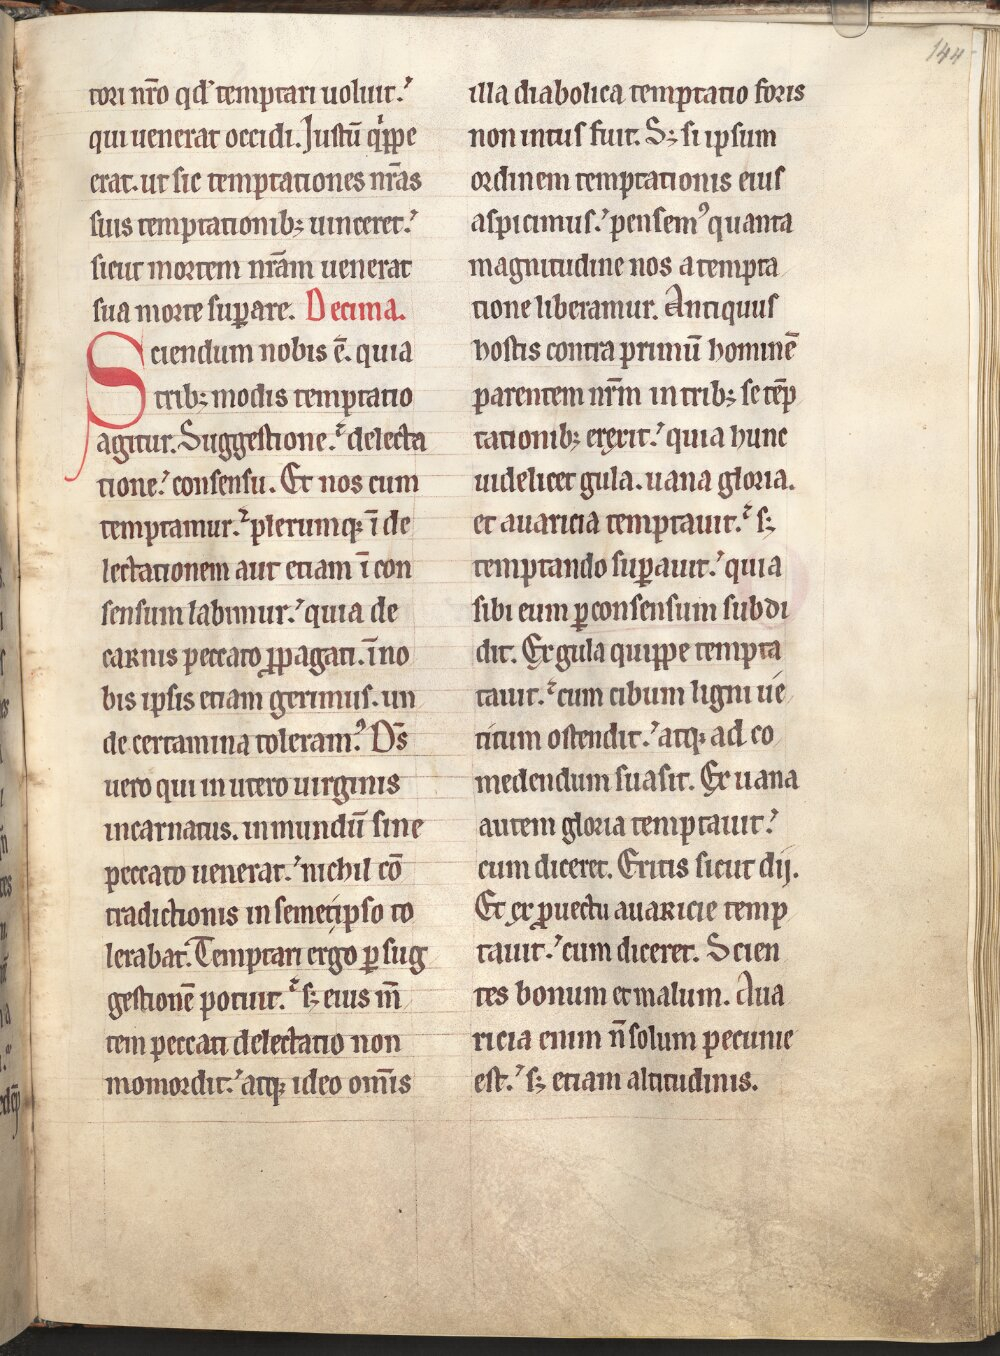 144
tori nr̄o qd' temptari uoluit.
qui uenerat occidi. Justū qͥppe
erat. ut sic temptationes nr̄as
suis temptationib; uinceret.
sicut mortem nr̄am uenerat
sua morte suꝑare. Decima.
Sciendum nobis ē. quia
trib; modis temptatio
agitur. Suggestione. delecta
tione. consensu. Et nos cum
temptamur. plerumq; ī de
lectationem aut etiam ī con
sensum labimur. quia de
carnis peccato ꝓpagati. ī no
bis ipsis etiam gerimus. un
de certamina toleramꝰ. Ds̄
uero qui in utero uirginis
incarnatus. in mundū sine
peccato uenerat. nichil cō
tradictionis in semetipso to
lerabat. Temptari ergo ꝑ sug
gestionē potuit. s; eius m̄
tem peccati delectatio non
momordit. atq; ideo om̄is
illa diabolica temptatio foris
non intus fuit. S; si ipsum
ordinem temptationis eius
aspicimus. pensemꝰ quanta
magnitudine nos a tempta
tione liberamur. Antiquus
hostis contra primū hominē
parentem nr̄m in trib; se tēp
tationib; erexit. quia hunc
uidelicet gula. uana gloria.
et auaricia temptauit. s;
temptando suꝑauit. quia
sibi eum ꝑ consensum subdi
dit. Ex gula quippe tempta
tauit. cum cibum ligni ue
titum ostendit. atq; ad co
medendum suasit. Ex uana
autem gloria temptauit.
cum diceret. Eritis sicut dij.
Et ex ꝓuectu auaricie temp
tauit. cum diceret. Scien
tes bonum et malum. Aua
ricia enim n̄ solum pecunie
est. s; etiam altitudinis.